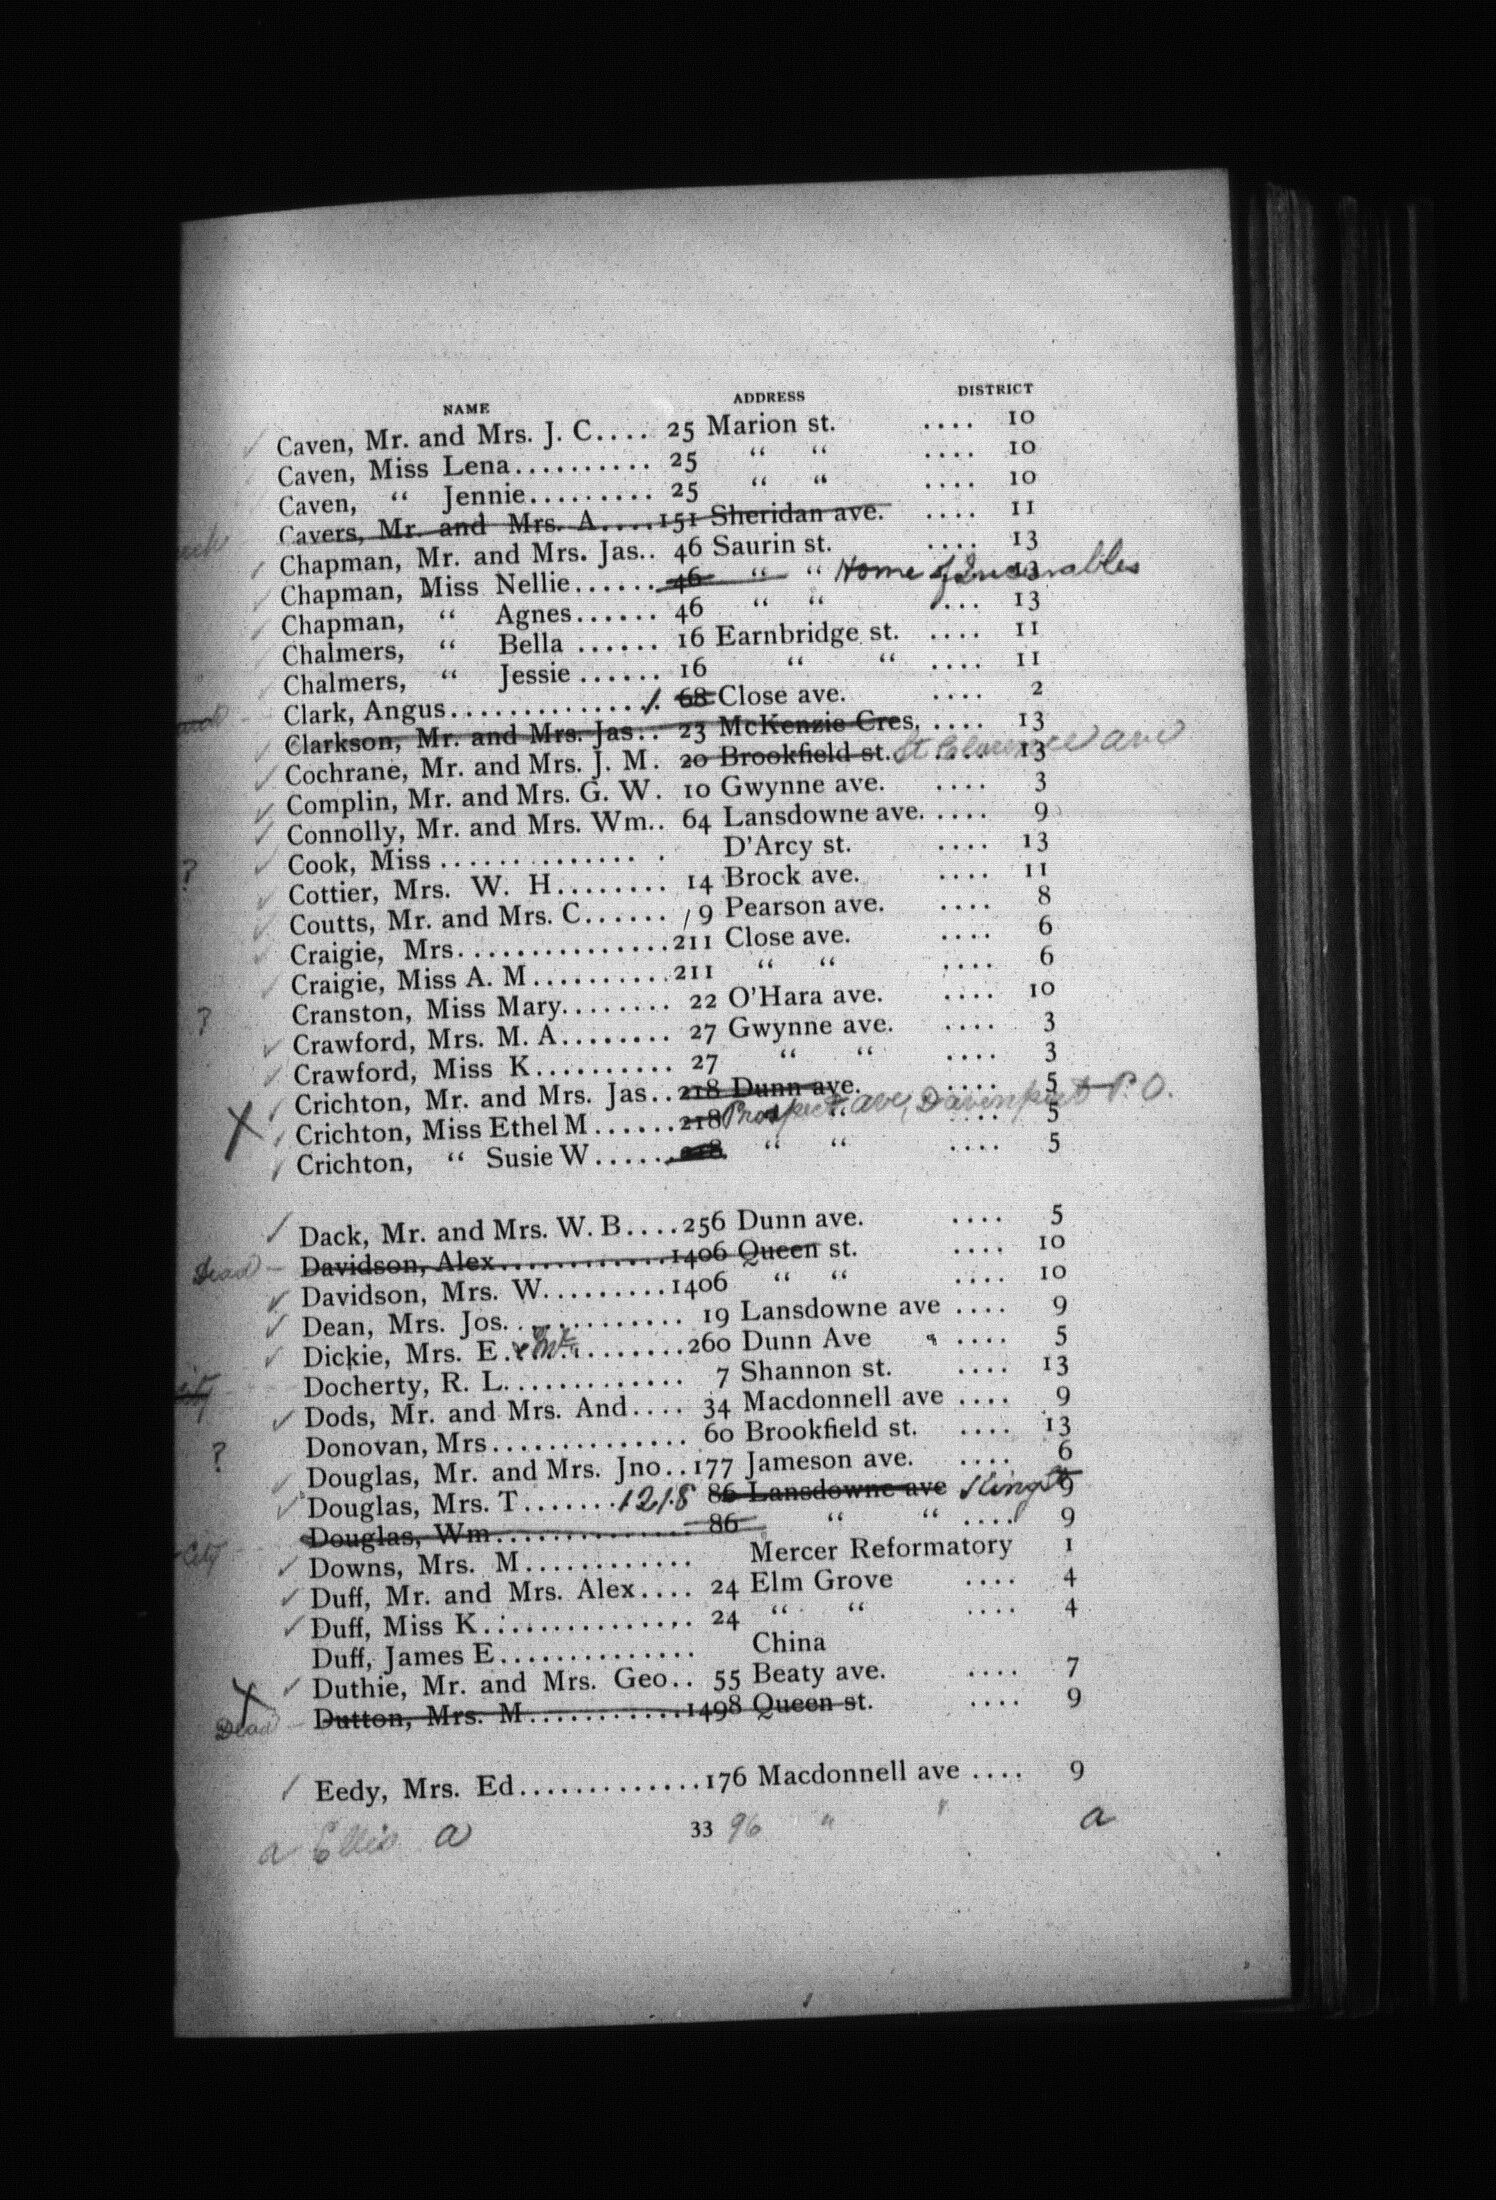 NAME ADDRESS DISTRICT
Caven, Mr. and Mrs. J. C.... 25 Marion st. .... 10
Caven, Miss Lena.......... 25 “ “ .... 10
Caven, “ Jennie......... 25 “ “ .... 10
Cavers, Mr. and Mrs. A....151 Sheridan ave. .... 11
Chapman, Mr. and Mrs. Jas.. 46 Saurin st. .... 13
Chapman, Miss Nellie...... 46 “ “ Home of Incurables 13
Chapman, “ Agnes...... 46 “ “ .... 13
Chalmers, “ Bella ...... 16 Earnbridge st. .... 11
Chalmers, “ Jessie ...... 16 “ “ .... 11
Clark, Angus.............. 68 Close ave. .... 2
Clarkson, Mr. and Mrs. Jas.. 23 McKenzie Cres. .... 13
Cochrane, Mr. and Mrs. J. M. 20 Brookfield st. St Clarence ave .... 13
Complin, Mr. and Mrs. G. W. 10 Gwynne ave. .... 3
Connolly, Mr. and Mrs. Wm.. 64 Lansdowne ave. .... 9
? Cook, Miss ...... ....... . D'Arcy st. .... 13
Cottier, Mrs. W. H........ 14 Brock ave. .... 11
Coutts, Mr. and Mrs. C...... /9 Pearson ave. .... 8
Craigie, Mrs...............211 Close ave. .... 6
Craigie, Miss A. M..........211 “ “ .... 6
? Cranston, Miss Mary........ 22 O'Hara ave. .... 10
Crawford, Mrs. M. A........ 27 Gwynne ave. .... 3
Crawford, Miss K.......... 27 “ “ .... 3
Crichton, Mr. and Mrs. Jas..218 Dunn ave. .... 5
X Crichton, Miss Ethel M......218 Prospect ave, Davenport P. O. “ .... 5
Crichton, “ Susie W......218 “ “ .... 5
Dack, Mr. and Mrs. W. B....256 Dunn ave. .... 5
Dead – Davidson, Alex............1406 Queen st. .... 10
Davidson, Mrs. W.........1406 “ “ .... 10
Dean, Mrs. Jos............. 19 Lansdowne ave .... 9
Dickie, Mrs. E.............260 Dunn Ave .... 5
Docherty, R. L............. 7 Shannon st. .... 13
Dods, Mr. and Mrs. And.... 34 Macdonnell ave .... 9
? Donovan, Mrs.............. 60 Brookfield st. .... 13
Douglas, Mr. and Mrs. Jno..177 Jameson ave. .... 6
Douglas, Mrs. T....... 1218 86 Lansdowne ave King st 9
Douglas, Wm.............. 86 “ “ .... 9
City Downs, Mrs. M............ Mercer Reformatory 1
Duff, Mr. and Mrs. Alex.... 24 Elm Grove .... 4
Duff, Miss K............... 24 “ “ .... 4
Duff, James E.............. China
Duthie, Mr. and Mrs. Geo.. 55 Beaty ave. .... 7
X Dead – Dutton, Mrs. M...........1498 Queen st. .... 9
Eedy, Mrs. Ed.............176 Macdonnell ave .... 9
a Ellis a 33 96 " " a